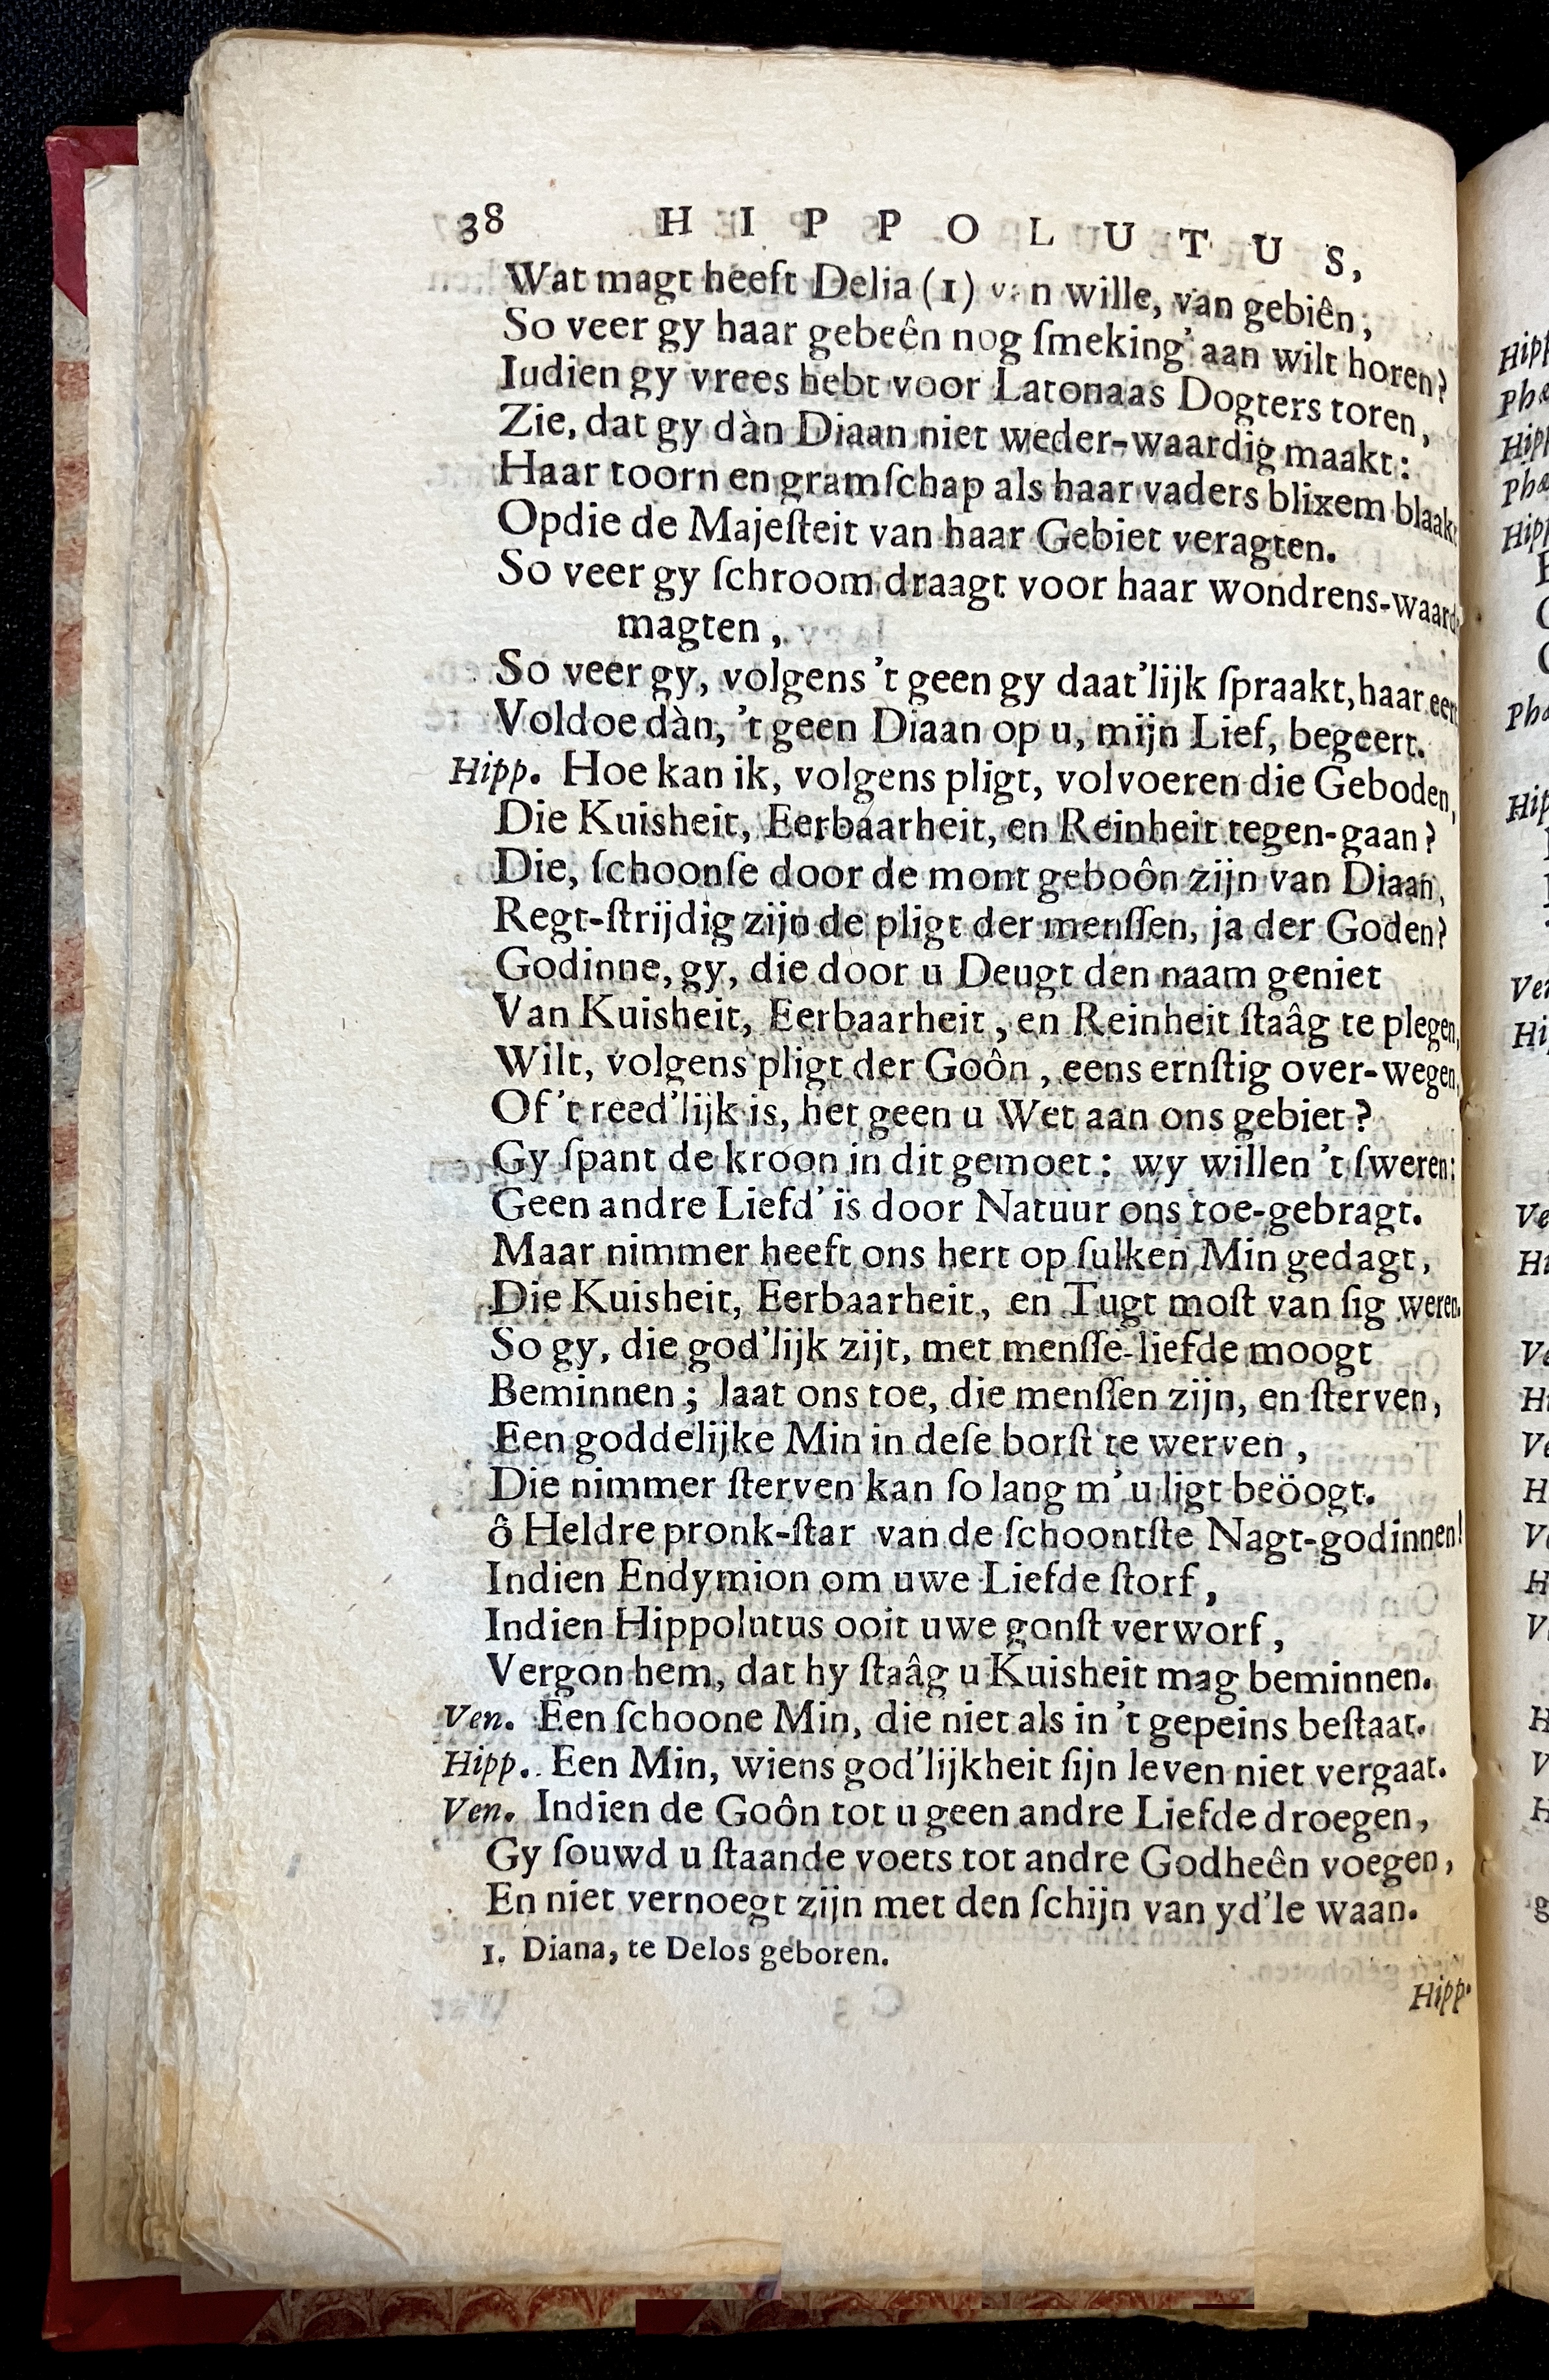 38 HIPPOLUTUS,
Wat magt heeft Delia (1) van wille, van gebiên;
So veer gy haar gebeên nog ſmeking' aan wilt horen?
Iudien gy vrees hebt voor Latonaas Dogters toren,
Zie, dat gy dàn Diaan niet weder-waardig maakt:
Haar toorn en gramſchap als haar vaders blixem blaakt
Opdie de Majeſteit van haar Gebiet veragten.
So veer gy ſchroom draagt voor haar wondrens-waarde
magten,
So veer gy, volgens 't geen gy daat'lijk ſpraakt, haar eert
Voldoe dàn, 't geen Diaan op u, mijn Lief, begeert.
Hipp. Hoe kan ik, volgens pligt, volvoeren die Geboden,
Die Kuisheit, Eerbaarheit, en Reinheit tegen-gaan?
Die, ſchoonſe door de mont geboôn zijn van Diaan,
Regt-ſtrijdig zijn de pligt der menſſen, ja der Goden?
Godinne, gy, die door u Deugt den naam geniet
Van Kuisheit, Eerbaarheit, en Reinheit ſtaâg te plegen,
Wilt, volgens pligt der Goôn, eens ernſtig over-wegen,
Of 't reed'lijk is, het geen u Wet aan ons gebiet?
Gy ſpant de kroon in dit gemoet: wy willen 't ſweren:
Geen andre Liefd' is door Natuur ons toe-gebragt.
Maar nimmer heeft ons hert op ſulken Min gedagt,
Die Kuisheit, Eerbaarheit, en Tugt moſt van ſig weren.
So gy, die god'lijk zijt, met menſſe-liefde moogt
Beminnen; laat ons toe, die menſſen zijn, en ſterven,
Een goddelijke Min in deſe borſt te werven,
Die nimmer ſterven kan ſo lang m' u ligt beöogt.
ô Heldre pronk-ſtar van de ſchoontſte Nagt-godinnen!
Indien Endymion om uwe Liefde ſtorf,
Indien Hippolutus ooit uwe gonſt verworf,
Vergon hem, dat hy ſtaâg u Kuisheit mag beminnen.
Ven. Een ſchoone Min, die niet als in 't gepeins beſtaat.
Hipp. Een Min, wiens god'lijkheit ſijn leven niet vergaat.
Ven. Indien de Goôn tot u geen andre Liefde droegen,
Gy ſouwd u ſtaande voets tot andre Godheên voegen,
En niet vernoegt zijn met den ſchijn van yd'le waan.
1. Diana, te Delos geboren.
Hipp.